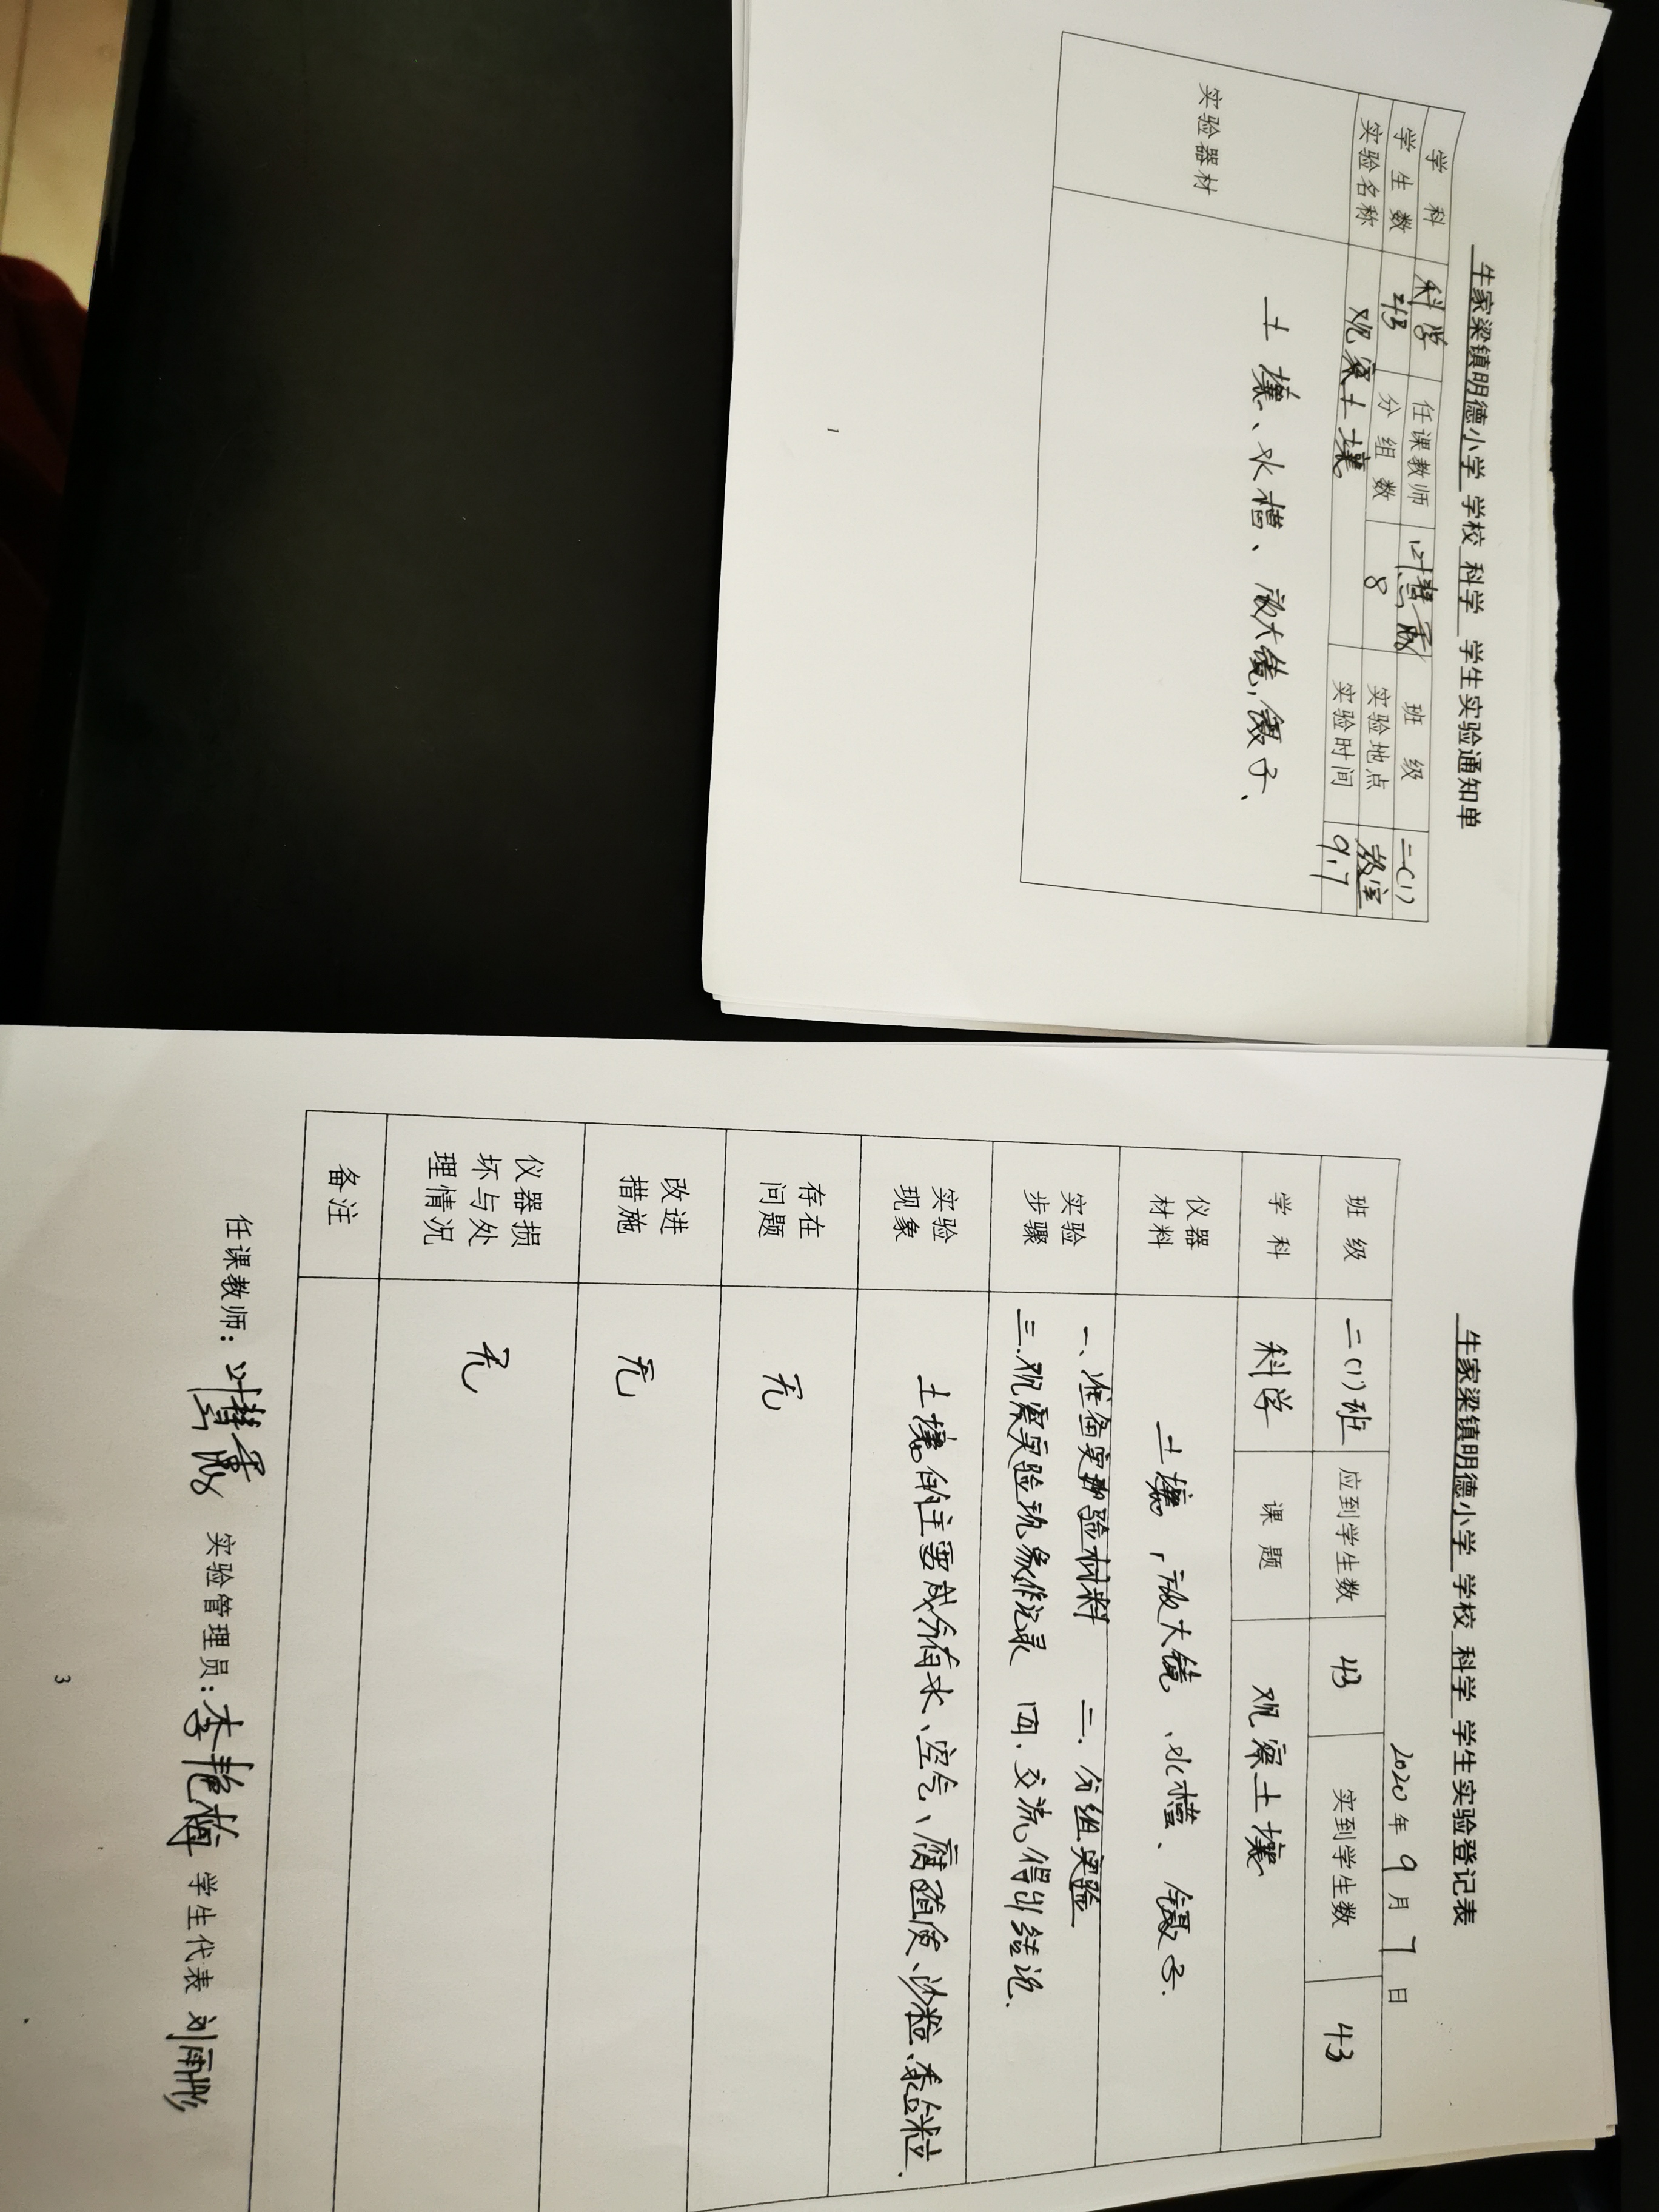 牛家梁镇明德小学 学校 科学 学生实验通知单
学 科 科学 任课教师 叶慧霞 班 级 二(1)
学 生 数 43 分 组 数 8 实验地点 教室
实验名称 观察土壤 实验时间 9.7
实验器材 土壤、水槽、放大镜,镊子、
1
牛家梁镇明德小学 学校 科学 学生实验登记表
2020 年 9 月 7 日
班 级 二(1)班 应到学生数 43 实到学生数 43
学 科 科学 课 题 观察土壤
仪器材料 土壤,放大镜、水槽、镊子.
实验步骤 一、准备实验材料 二.分组实验
三.观察实验现象作记录 四.交流得出结论.
实验现象 土壤的主要成分有水、空气、腐殖质、沙粒、黏粒.
存在问题 无
改进措施 无
仪器损坏与处理情况 无
备注
任课教师: 叶慧霞 实验管理员: 李艳梅 学生代表 刘雨彤
3